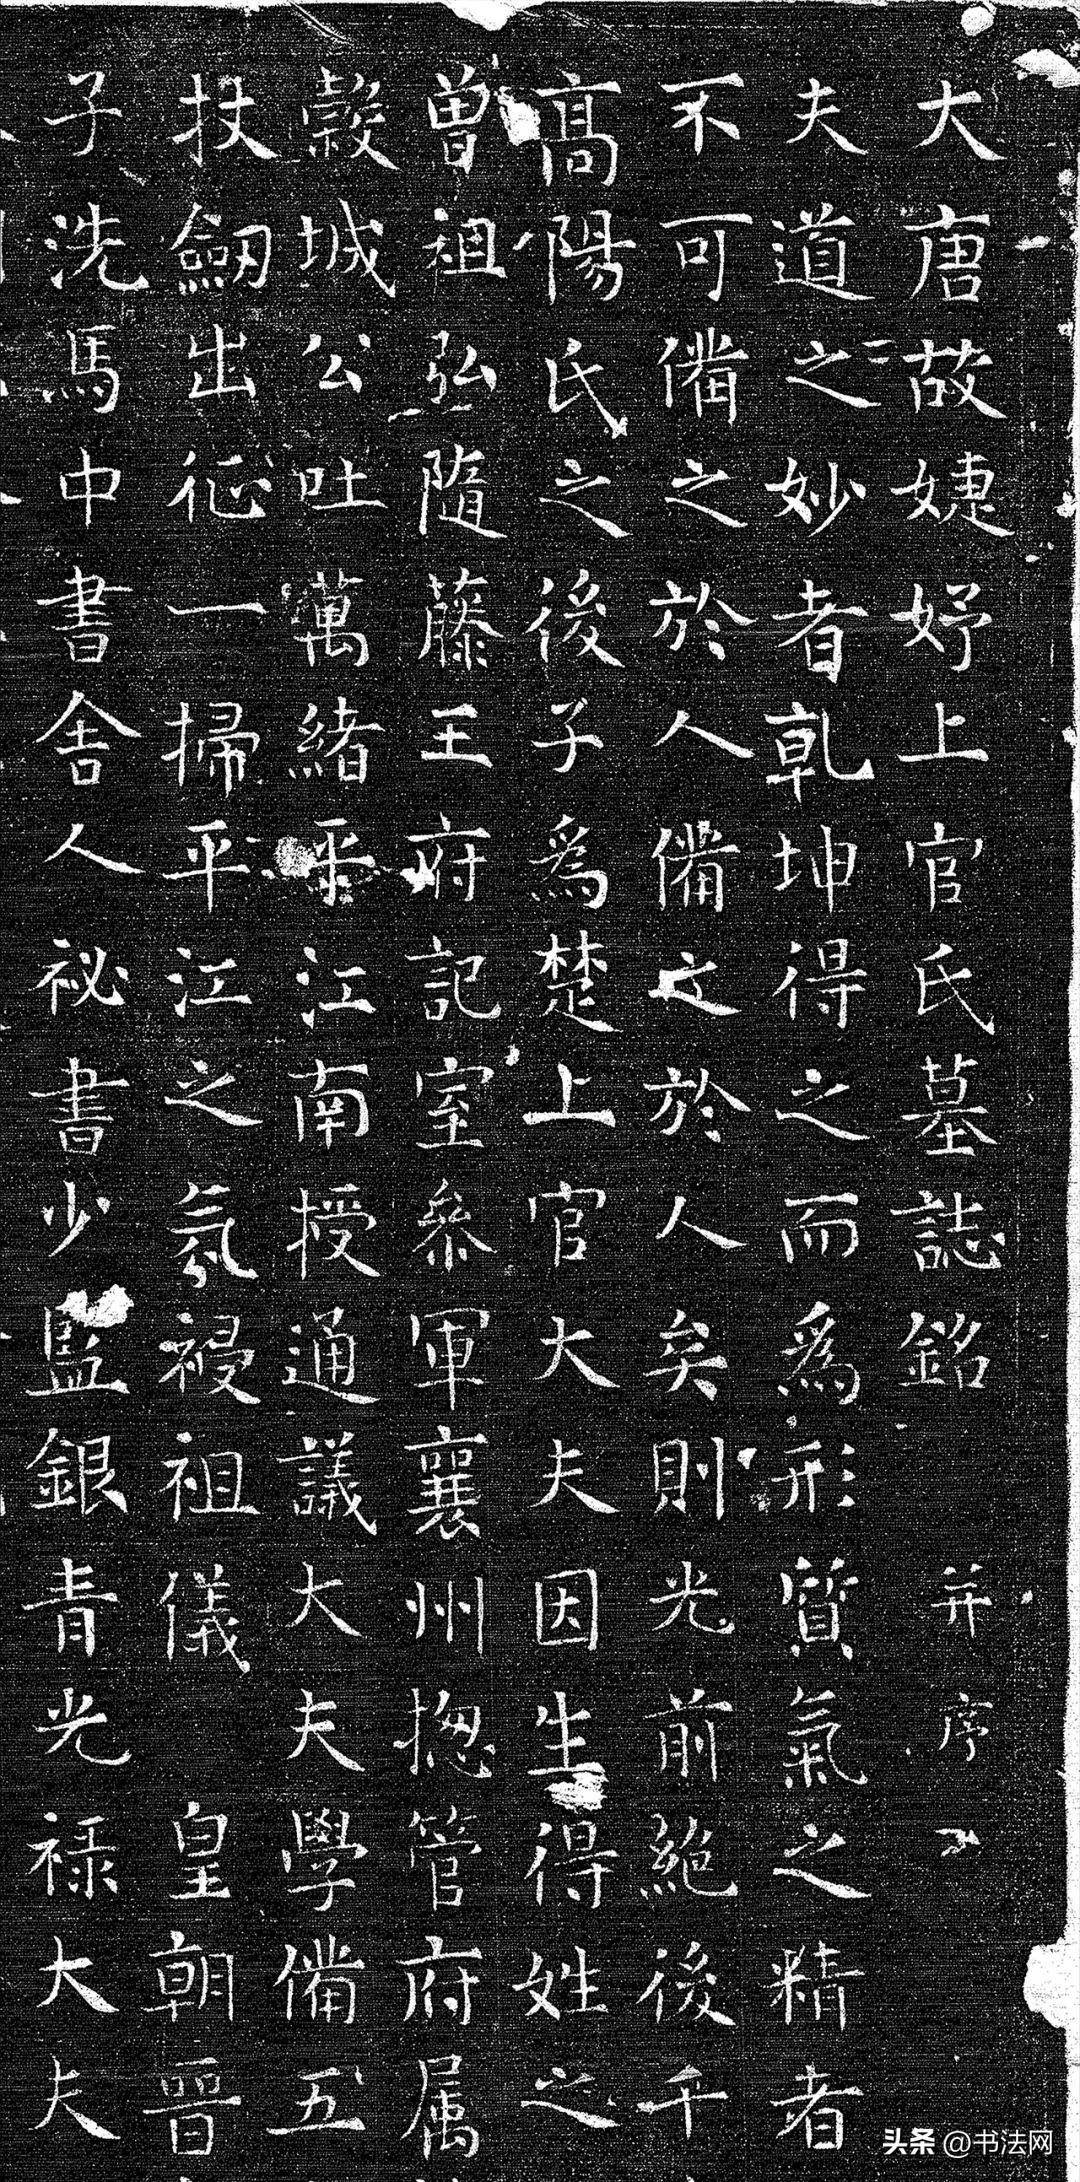 大唐故婕妤上官氏墓誌銘 并序
夫道之妙者乾坤得之而爲形質氣之精者
不可備之於人備之於人矣則光前絶後千
高陽氏之後子爲楚上官大夫因生得姓之
曾祖弘隨藤王府記室叅軍襄州揔管府属
穀城公吐萬緒平江南授通議大夫學備五
扙劒出征一掃平江之氛祲祖儀 皇朝晉
子洗馬中書舍人祕書少監銀青光禄大夫
头条 @书法网